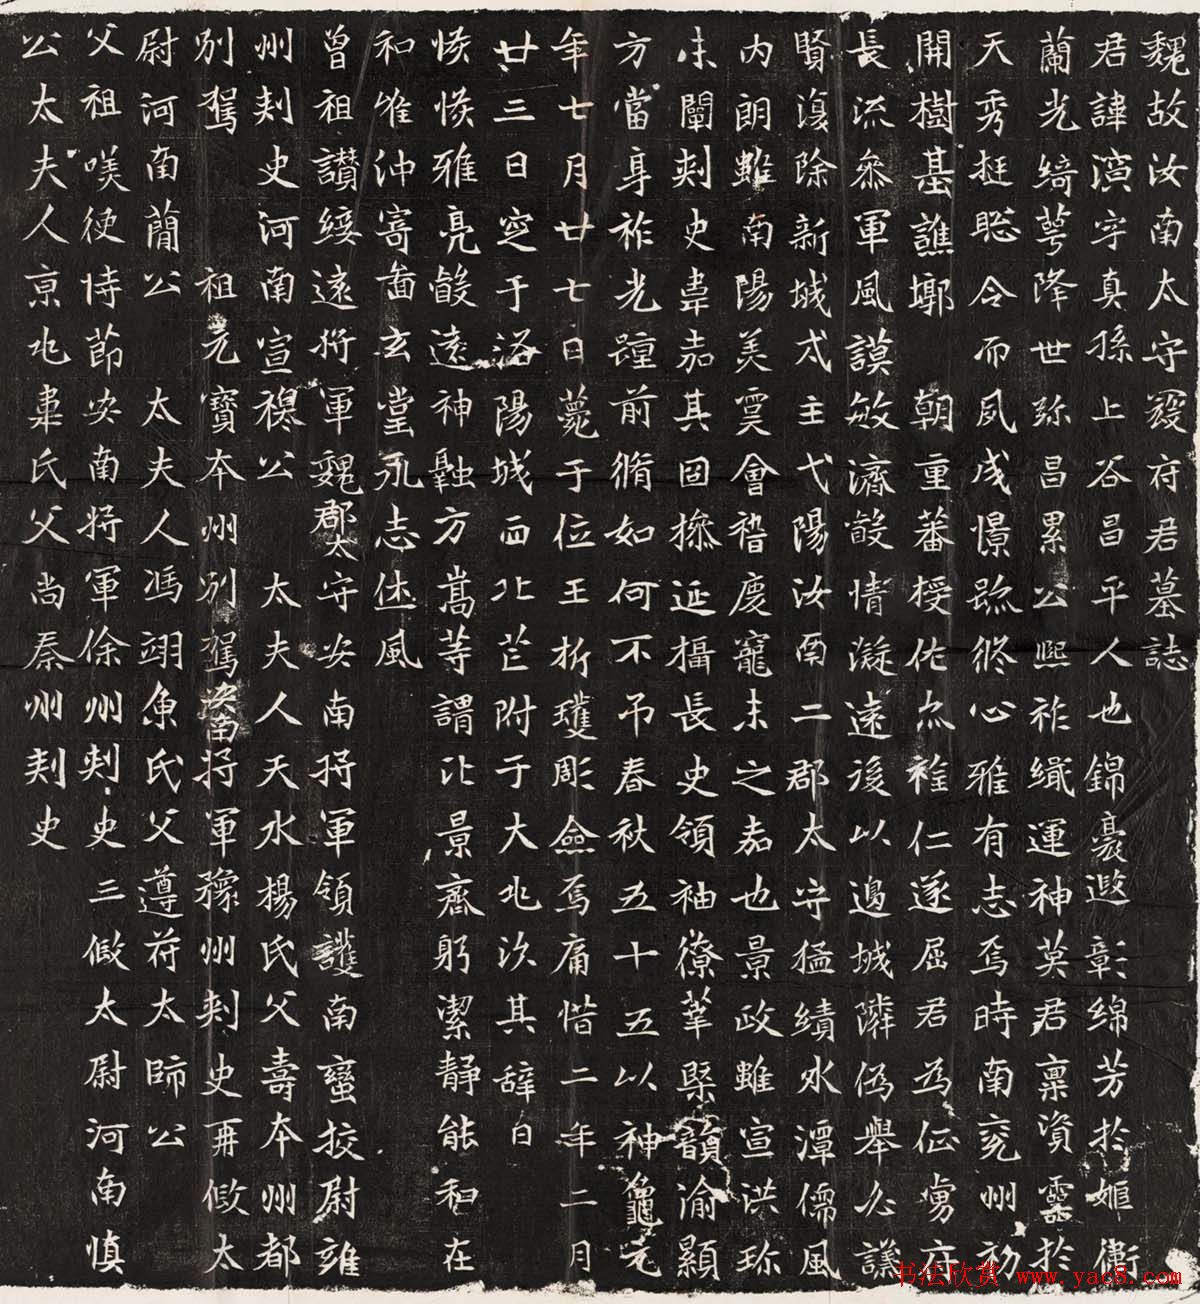 魏故汝南太守寇府君墓誌
君諱演字真孫上谷昌平人也錦裛遐彰綿芳於姬衛
蘭光綺萼降世弥昌累公熙祚纎運神英君稟資靈於
天秀挺聡令而夙成憬踪終心雅有志焉時南兖州初
開樹基譙墎 朝重蕃授佐命稚仁遂屈君為征虜府
長流叅軍風謨敏濟毅情凝遠後以邊城隣偽舉必議
賢復除新城戍主弋陽汝南二郡太守猛績水潭儒風
內朗雖南陽美寞會稽慶寵未之嘉也景政雖宣洪珎
未闡刾史韋嘉其固操延攝長史領袖僚菶槩韻渝顯
方當身祚光踵前脩如何不弔春秋五十五以神龜元
年七月廿七日薨于位王折瓊彫僉焉痛惜二年二月
廿三日窆于洛陽城西北芒附于大兆次其辭曰
惔惔雅亮毅遠神融方嵩等謂比景齊躬潔靜能和在
和惟沖寄啚玄堂永志休風
曾祖讚綏遠將軍魏郡太守安南將軍領護南蠻挍尉雍
州刾史河南宣穆公 太夫人天水楊氏父壽本州都
別駕 祖元寶本州別駕安南將軍豫州刾史再假太
尉河南蕳公 太夫人馮翊魚氏父遵苻太師公
父祖嘆使恃節安南將軍徐州刾史三假太尉河南慎
公太夫人京兆韋氏父尚秦州刾史
书法欣赏 www.yac8.com